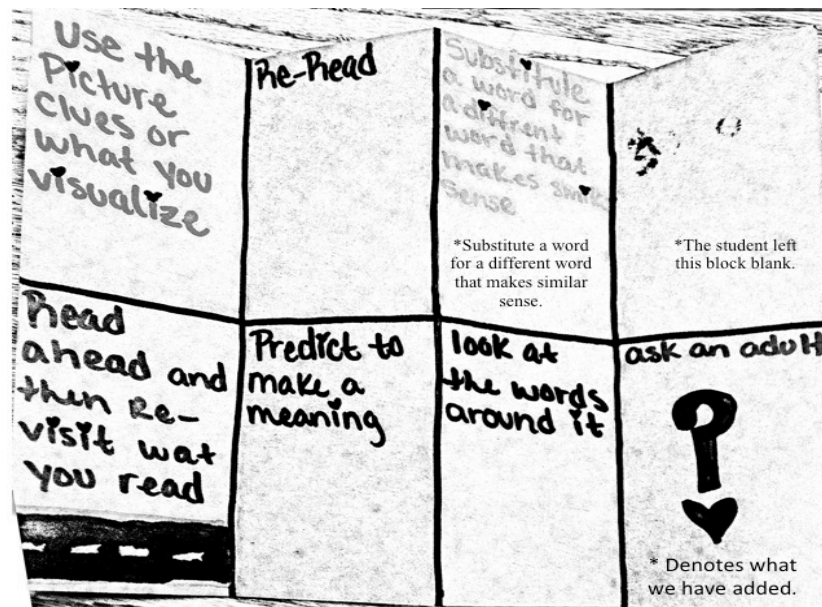 Use the
Picture
clues or
what you
visualize
Re-Read
Substitute
a word for
a diffrent
word that
makes
sense
*Substitute a word
for a different word
that makes similar
sense.
*The student left
this block blank.
Read
ahead and
then Re-
visit wat
you read
Predict to
make a
meaning
look at
the words
around it
ask an adult
?
* Denotes what
we have added.